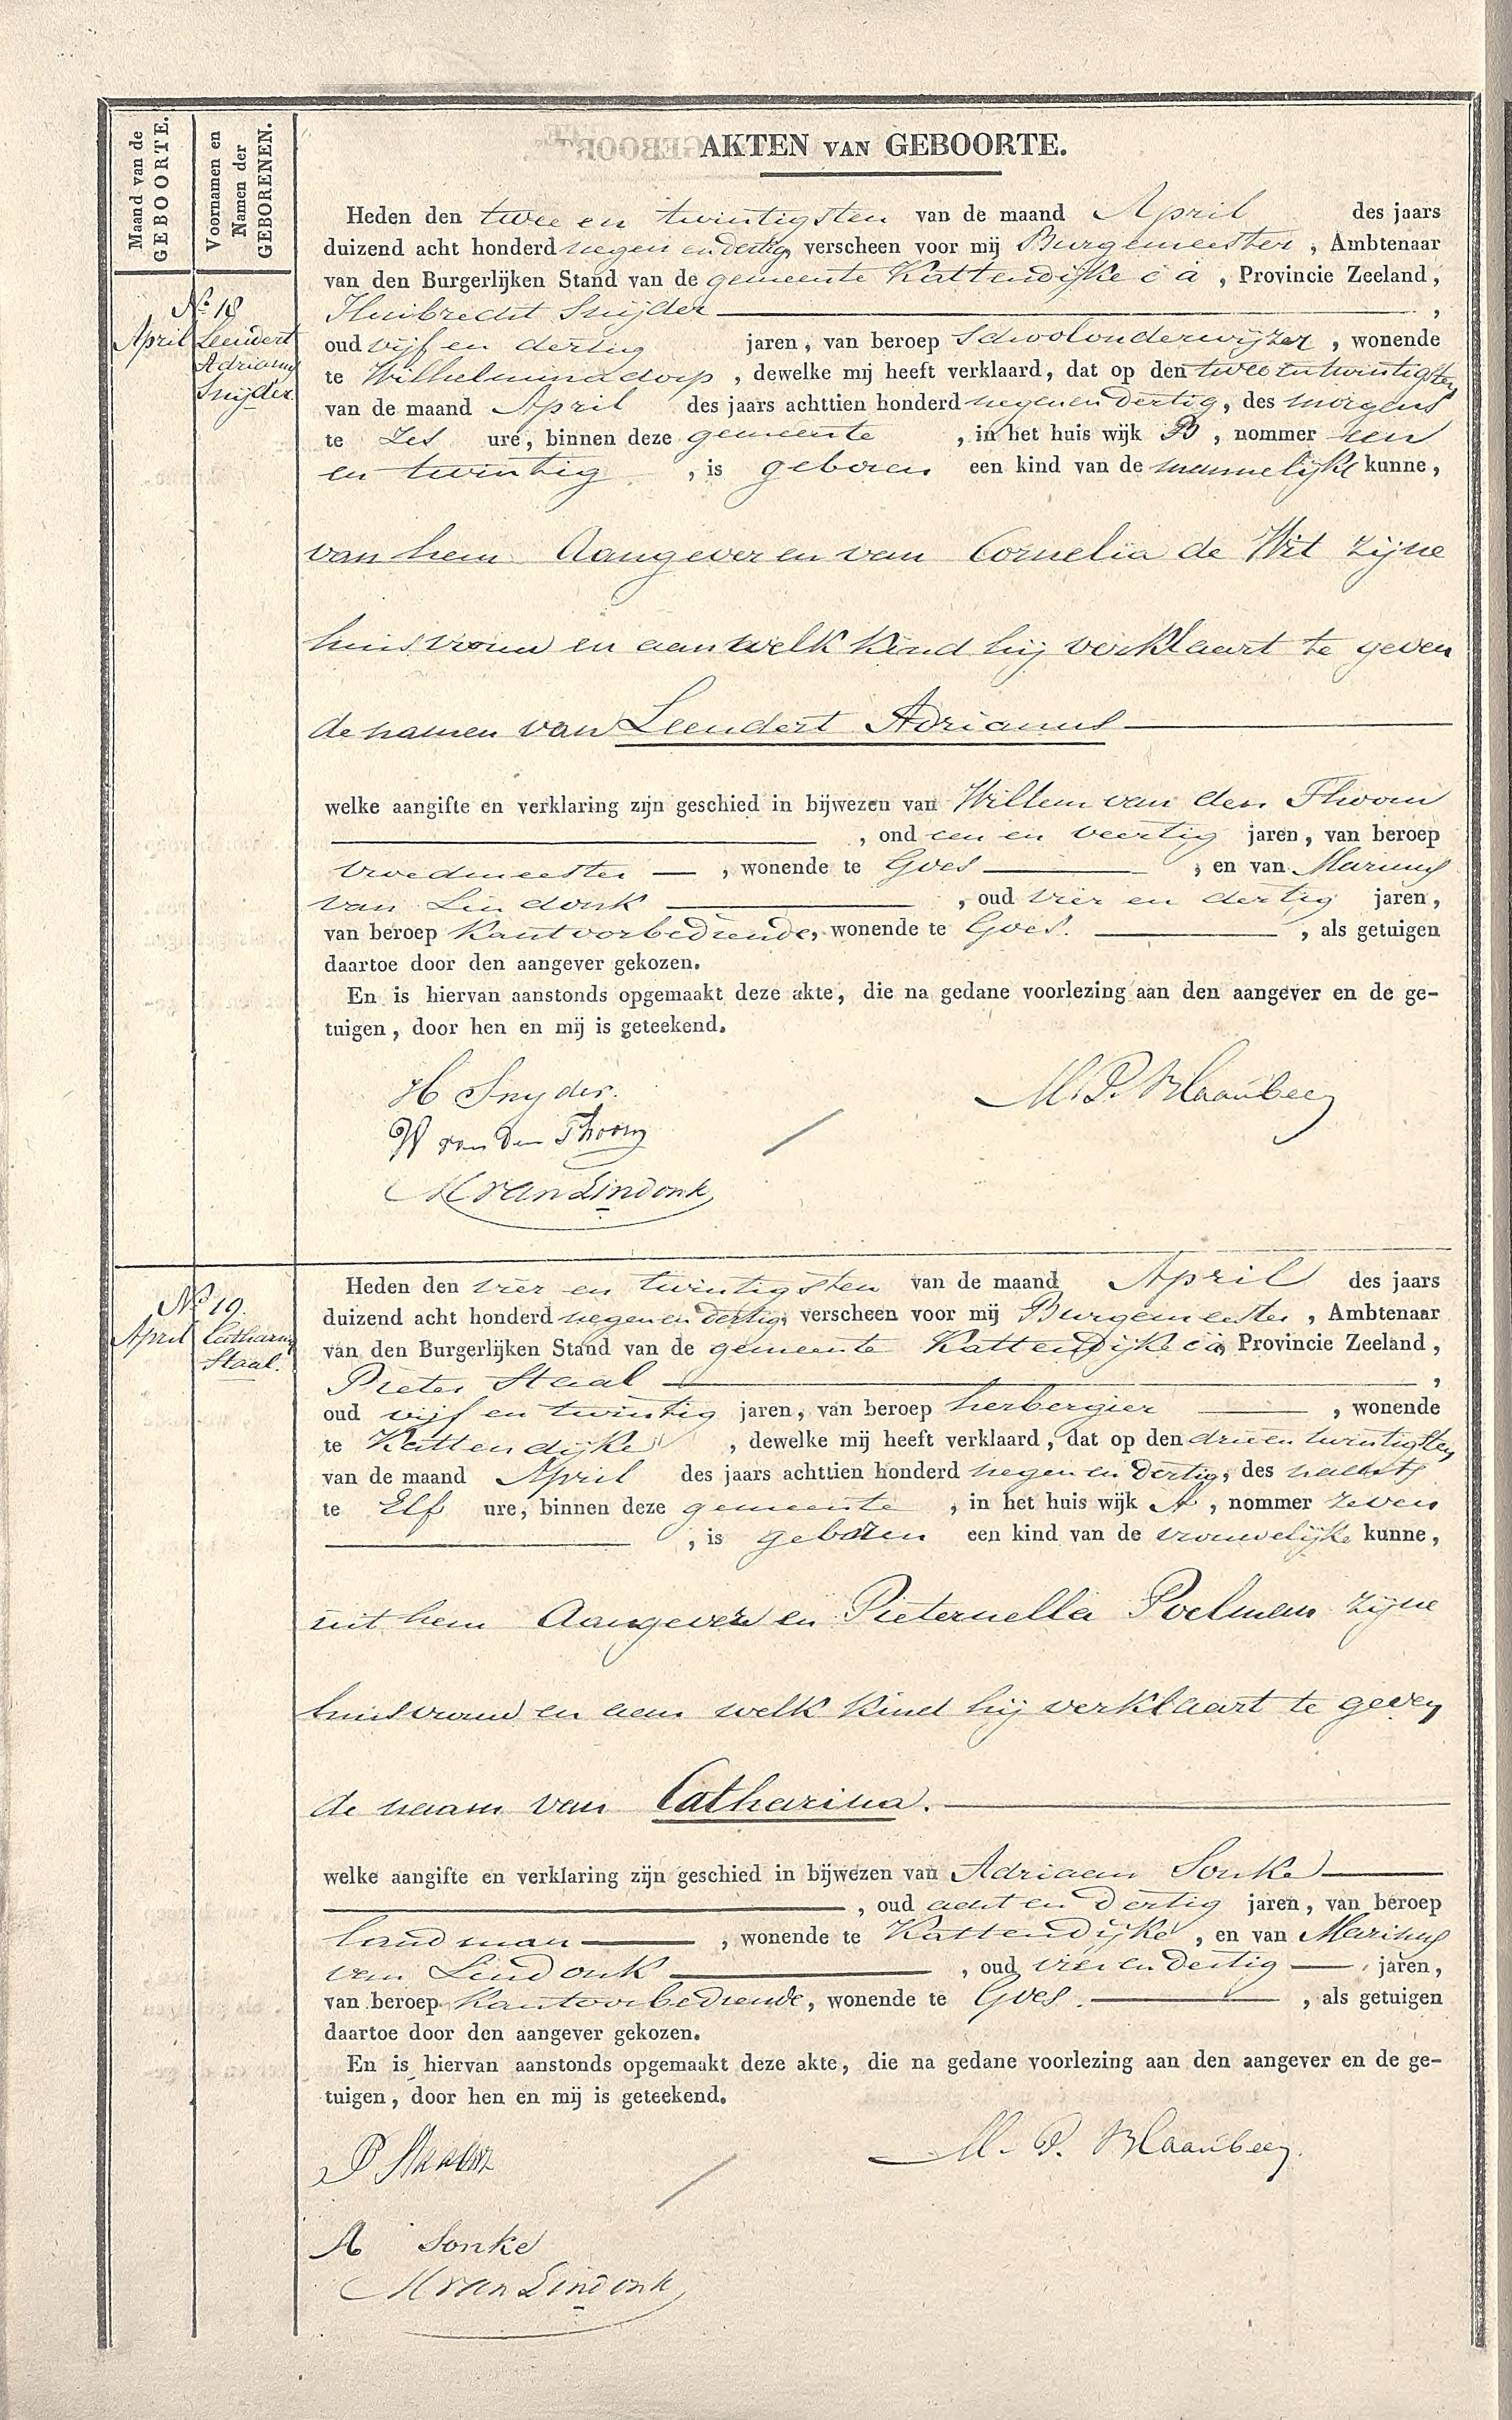 Maand van de
GEBOORTE.
Voornamen en
Namen der
GEBORENEN.
AKTEN VAN GEBOORTE.
No 18
April
Leendert
Adrianus
Snijder
Heden den twee en twintigsten van de maand April des jaars
duizend acht honderd negen en dertig verscheen voor mij Burgemeester, Ambtenaar
van den Burgerlijken Stand van de gemeente Kattendijke c a, Provincie Zeeland,
Huibrecht Snijder,
oud vijf en dertig jaren, van beroep Schoolonderwijzer, wonende
te Wilhelminadorp, dewelke mij heeft verklaard, dat op den twee en twintigsten
van de maand April des jaars achttien honderd negen en dertig, des morgens
te Zes ure, binnen deze gemeente, in het huis wijk B, nommer een
en twintig, is geboren een kind van de mannelijke kunne,
van hem Aangever en van Cornelia de Wit zijne
huisvrouw en aan welk kind hij verklaart te geven
de namen van Leendert Adrianus
welke aangifte en verklaring zijn geschied in bijwezen van Willem van den Thoorn
, oud een en veertig jaren, van beroep
vroedmeester, wonende te Goes, en van Marinus
van Lindonk, oud vier en dertig jaren,
van beroep Kantoorbediende, wonende te Goes., als getuigen
daartoe door den aangever gekozen.
En is hiervan aanstonds opgemaakt deze akte, die na gedane voorlezing aan den aangever en de ge-
tuigen, door hen en mij is geteekend.
H Snyder.
M. P. Blaaubeen
W van den Thoorn
M van Lindonk
No 19.
April
Catharina
Staal.
Heden den vier en twintigsten van de maand April des jaars
duizend acht honderd negen en dertig, verscheen voor mij Burgemeester, Ambtenaar
van den Burgerlijken Stand van de gemeente Kattendijke c a, Provincie Zeeland,
Pieter Staal,
oud vijf en twintig jaren, van beroep herbergier, wonende
te Kattendijke, dewelke mij heeft verklaard, dat op den drie en twintigsten
van de maand April des jaars achttien honderd negen en dertig, des nachts
te Elf ure, binnen deze gemeente, in het huis wijk A, nommer zeven
, is geboren een kind van de vrouwelijke kunne,
uit hem Aangever en Pieternella Poelman zijne
huisvrouw en aan welk kind hij verklaart te geven
de naam van Catharina.
welke aangifte en verklaring zijn geschied in bijwezen van Adriaan Sonke
, oud acht en dertig jaren, van beroep
landman, wonende te Kattendijke, en van Marinus
van Lindonk, oud vier en dertig jaren,
van beroep Kantoorbediende, wonende te Goes., als getuigen
daartoe door den aangever gekozen.
En is hiervan aanstonds opgemaakt deze akte, die na gedane voorlezing aan den aangever en de ge-
tuigen, door hen en mij is geteekend.
M. P. Blaaubeen.
A Sonke
M van Lindonk